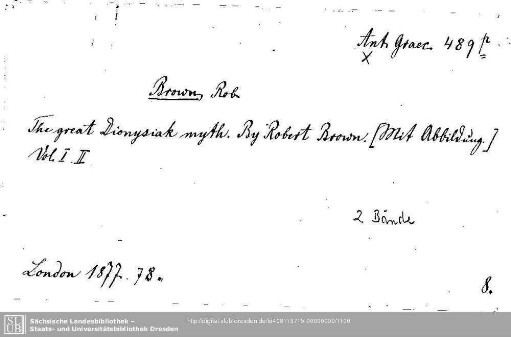 Ant. Graec. 489 p
X
Brown, Rob.
The great Dionysiak myth. By Robert Brown. [Mit Abbildung.]
Vol. I. II
2 Bände
London 1877. 78.
8.
SLUB
Sächsische Landesbibliothek –
Staats- und Universitätsbibliothek Dresden